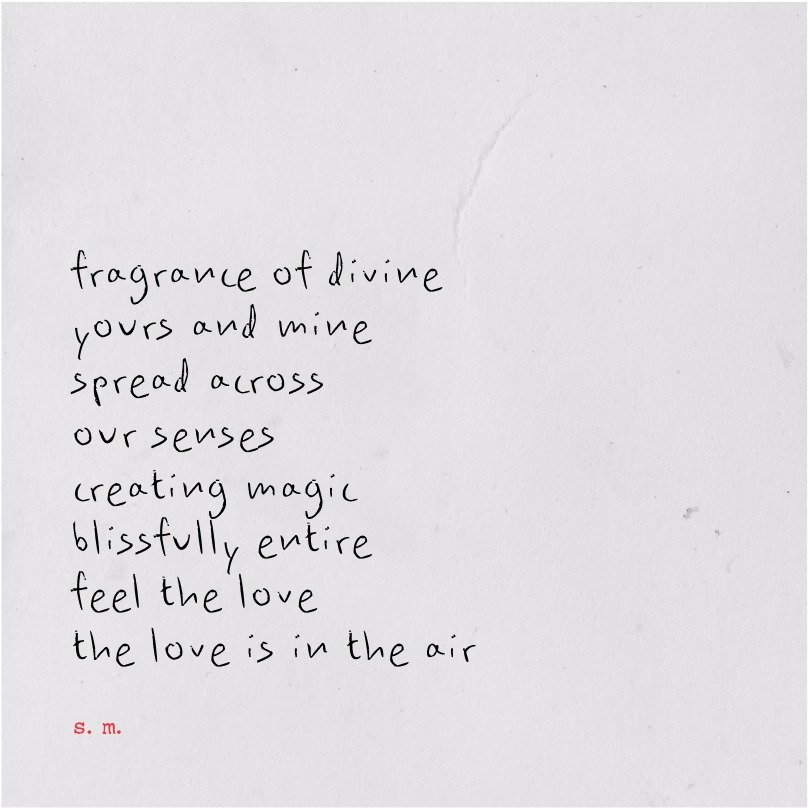 fragrance of divine
yours and mine
spread across
our senses
creating magic
blissfully entire
feel the love
the love is in the air
s. m.